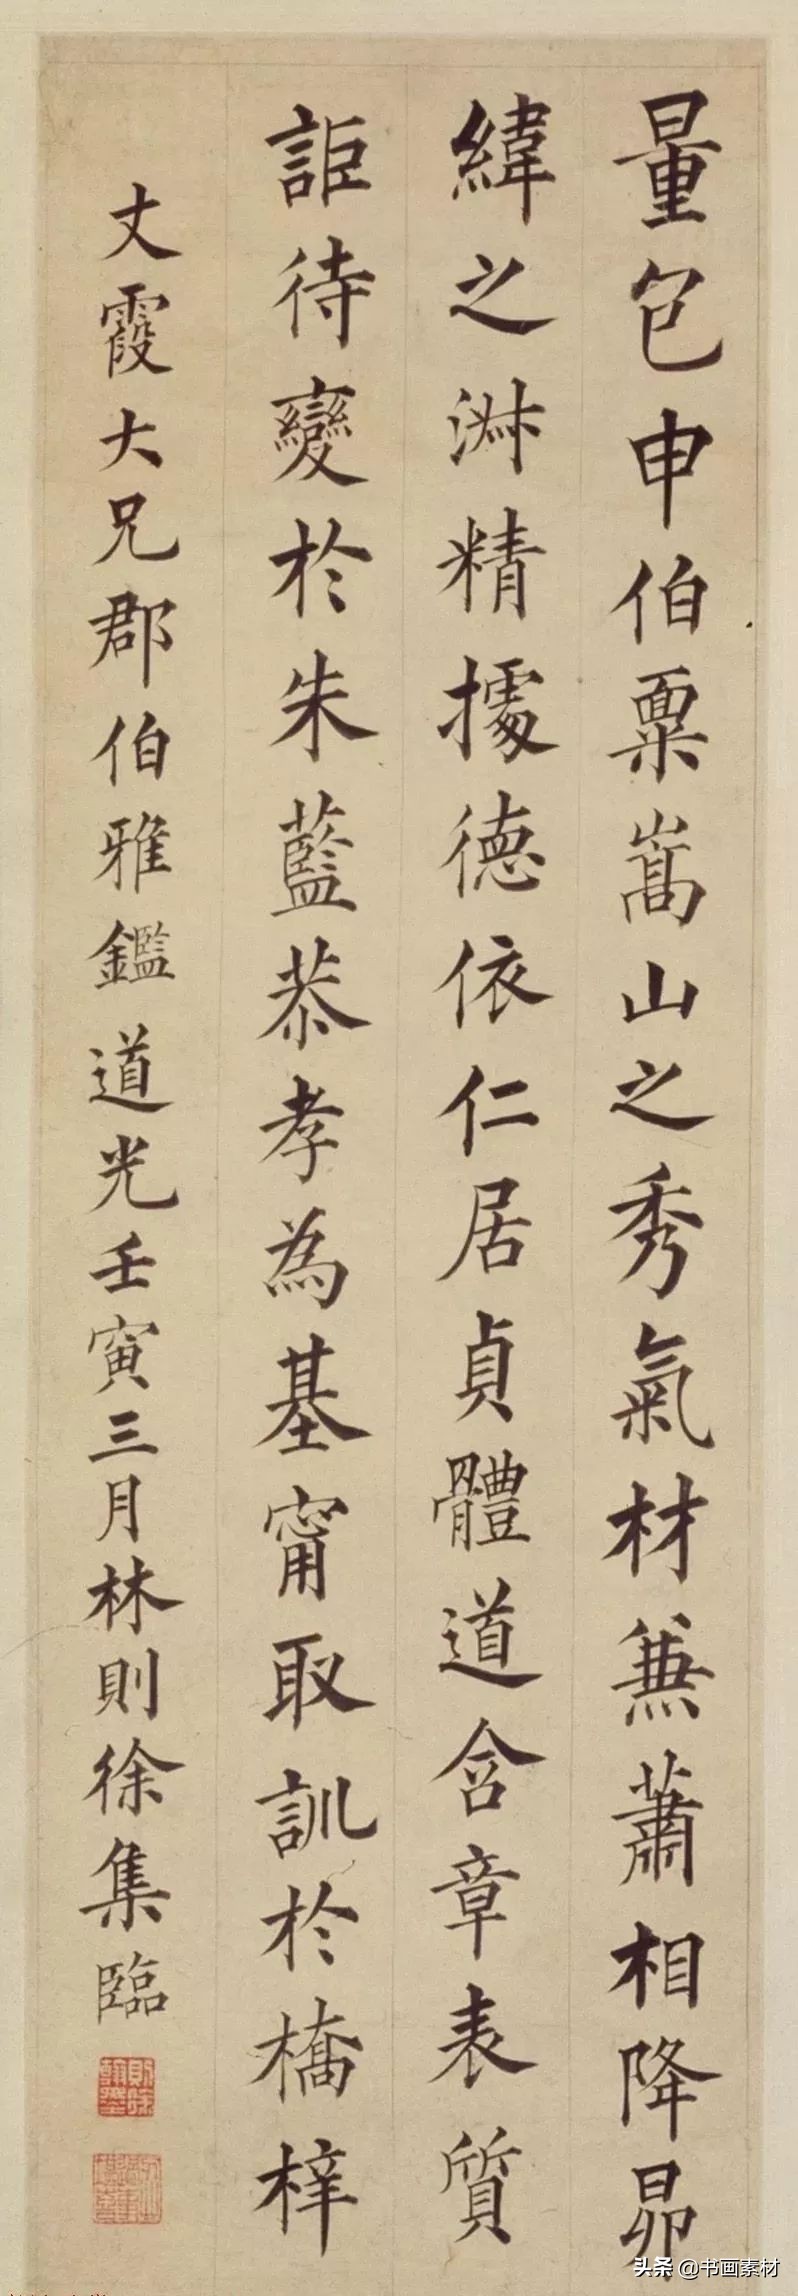 量包申伯稟嵩山之秀氣材兼蕭相降昴
緯之淋精據德依仁居貞體道含章表質
詎待變於朱藍恭孝為基甯取訓於橋梓
丈霞大兄郡伯雅鑑道光壬寅三月林則徐集臨
头条 @书画素材